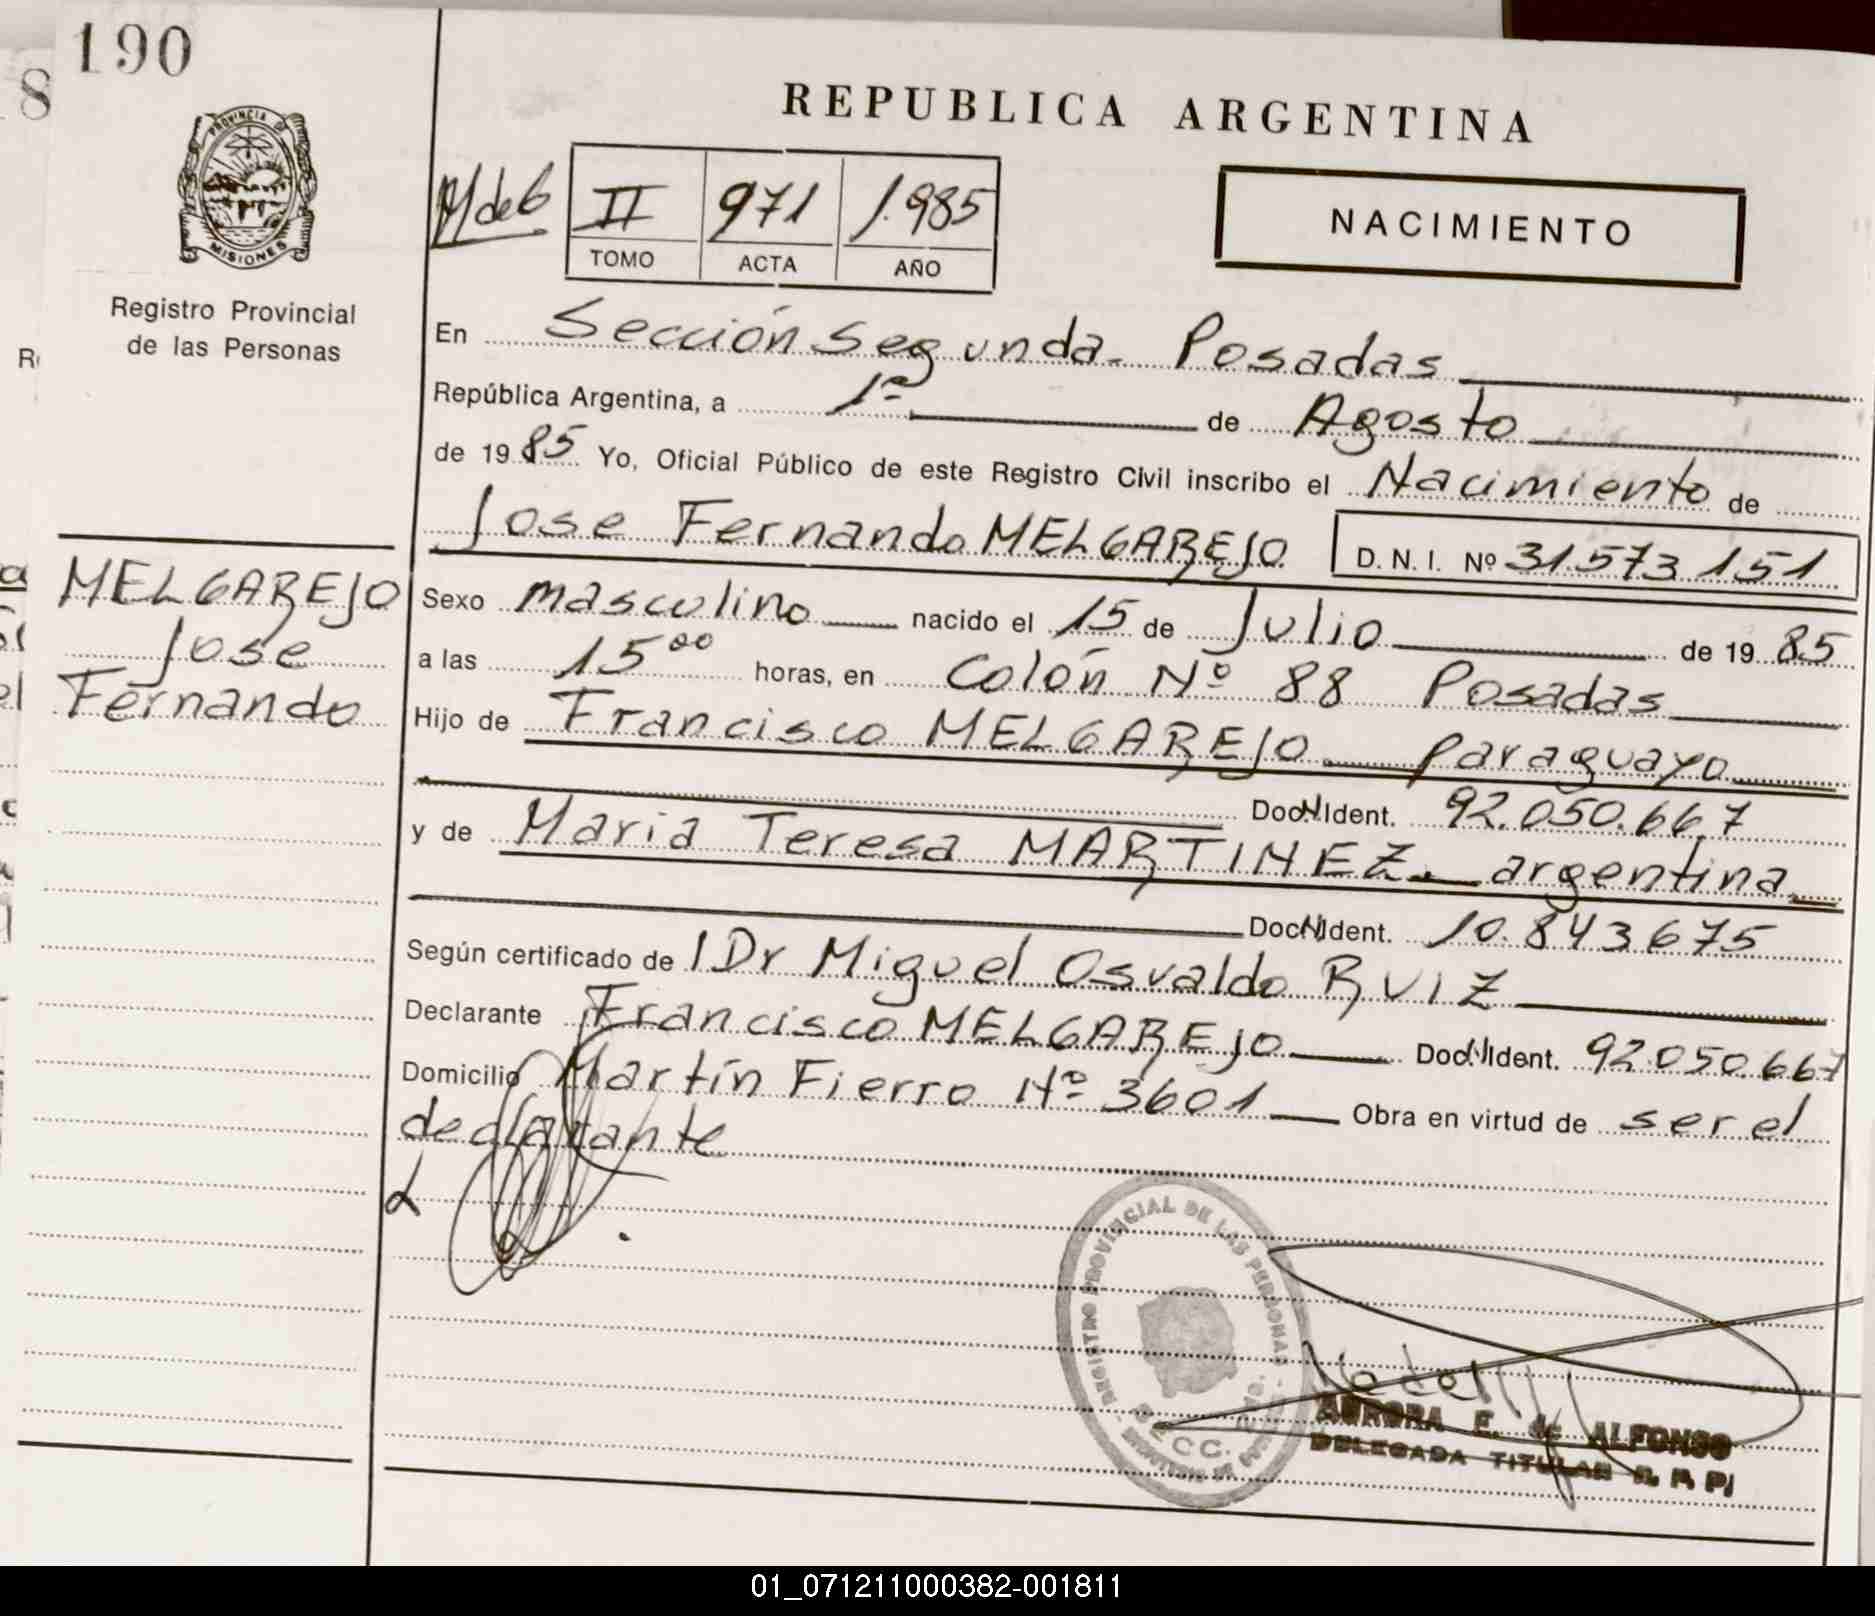 190
8
PROVINCIA DE
MISIONES
Registro Provincial
de las Personas
REPUBLICA ARGENTINA
M de 6
II 971 1.985
TOMO ACTA AÑO
NACIMIENTO
En Sección Segunda - Posadas
República Argentina, a 1º de Agosto
de 1985 Yo, Oficial Público de este Registro Civil inscribo el Nacimiento de
Jose Fernando MELGAREJO D. N. I. Nº 31.573.151
MELGAREJO
Jose
Fernando
Sexo masculino nacido el 15 de Julio de 1985
a las 15⁰⁰ horas, en Colón Nº 88 Posadas
Hijo de Francisco MELGAREJO paraguayo
Doc.N.Ident. 92.050.667
y de Maria Teresa MARTINEZ - argentina
Doc.N.Ident. 10.843675
Según certificado de Dr Miguel Osvaldo RUIZ
Declarante Francisco MELGAREJO Doc.N.Ident. 92.050.667
Domicilio Martín Fierro Nº 3601 Obra en virtud de ser el
declarante
REGISTRO PROVINCIAL DE LAS PERSONAS
AURORA E. de ALFONSO
DELEGADA TITULAR R. P. P.
01_071211000382-001811